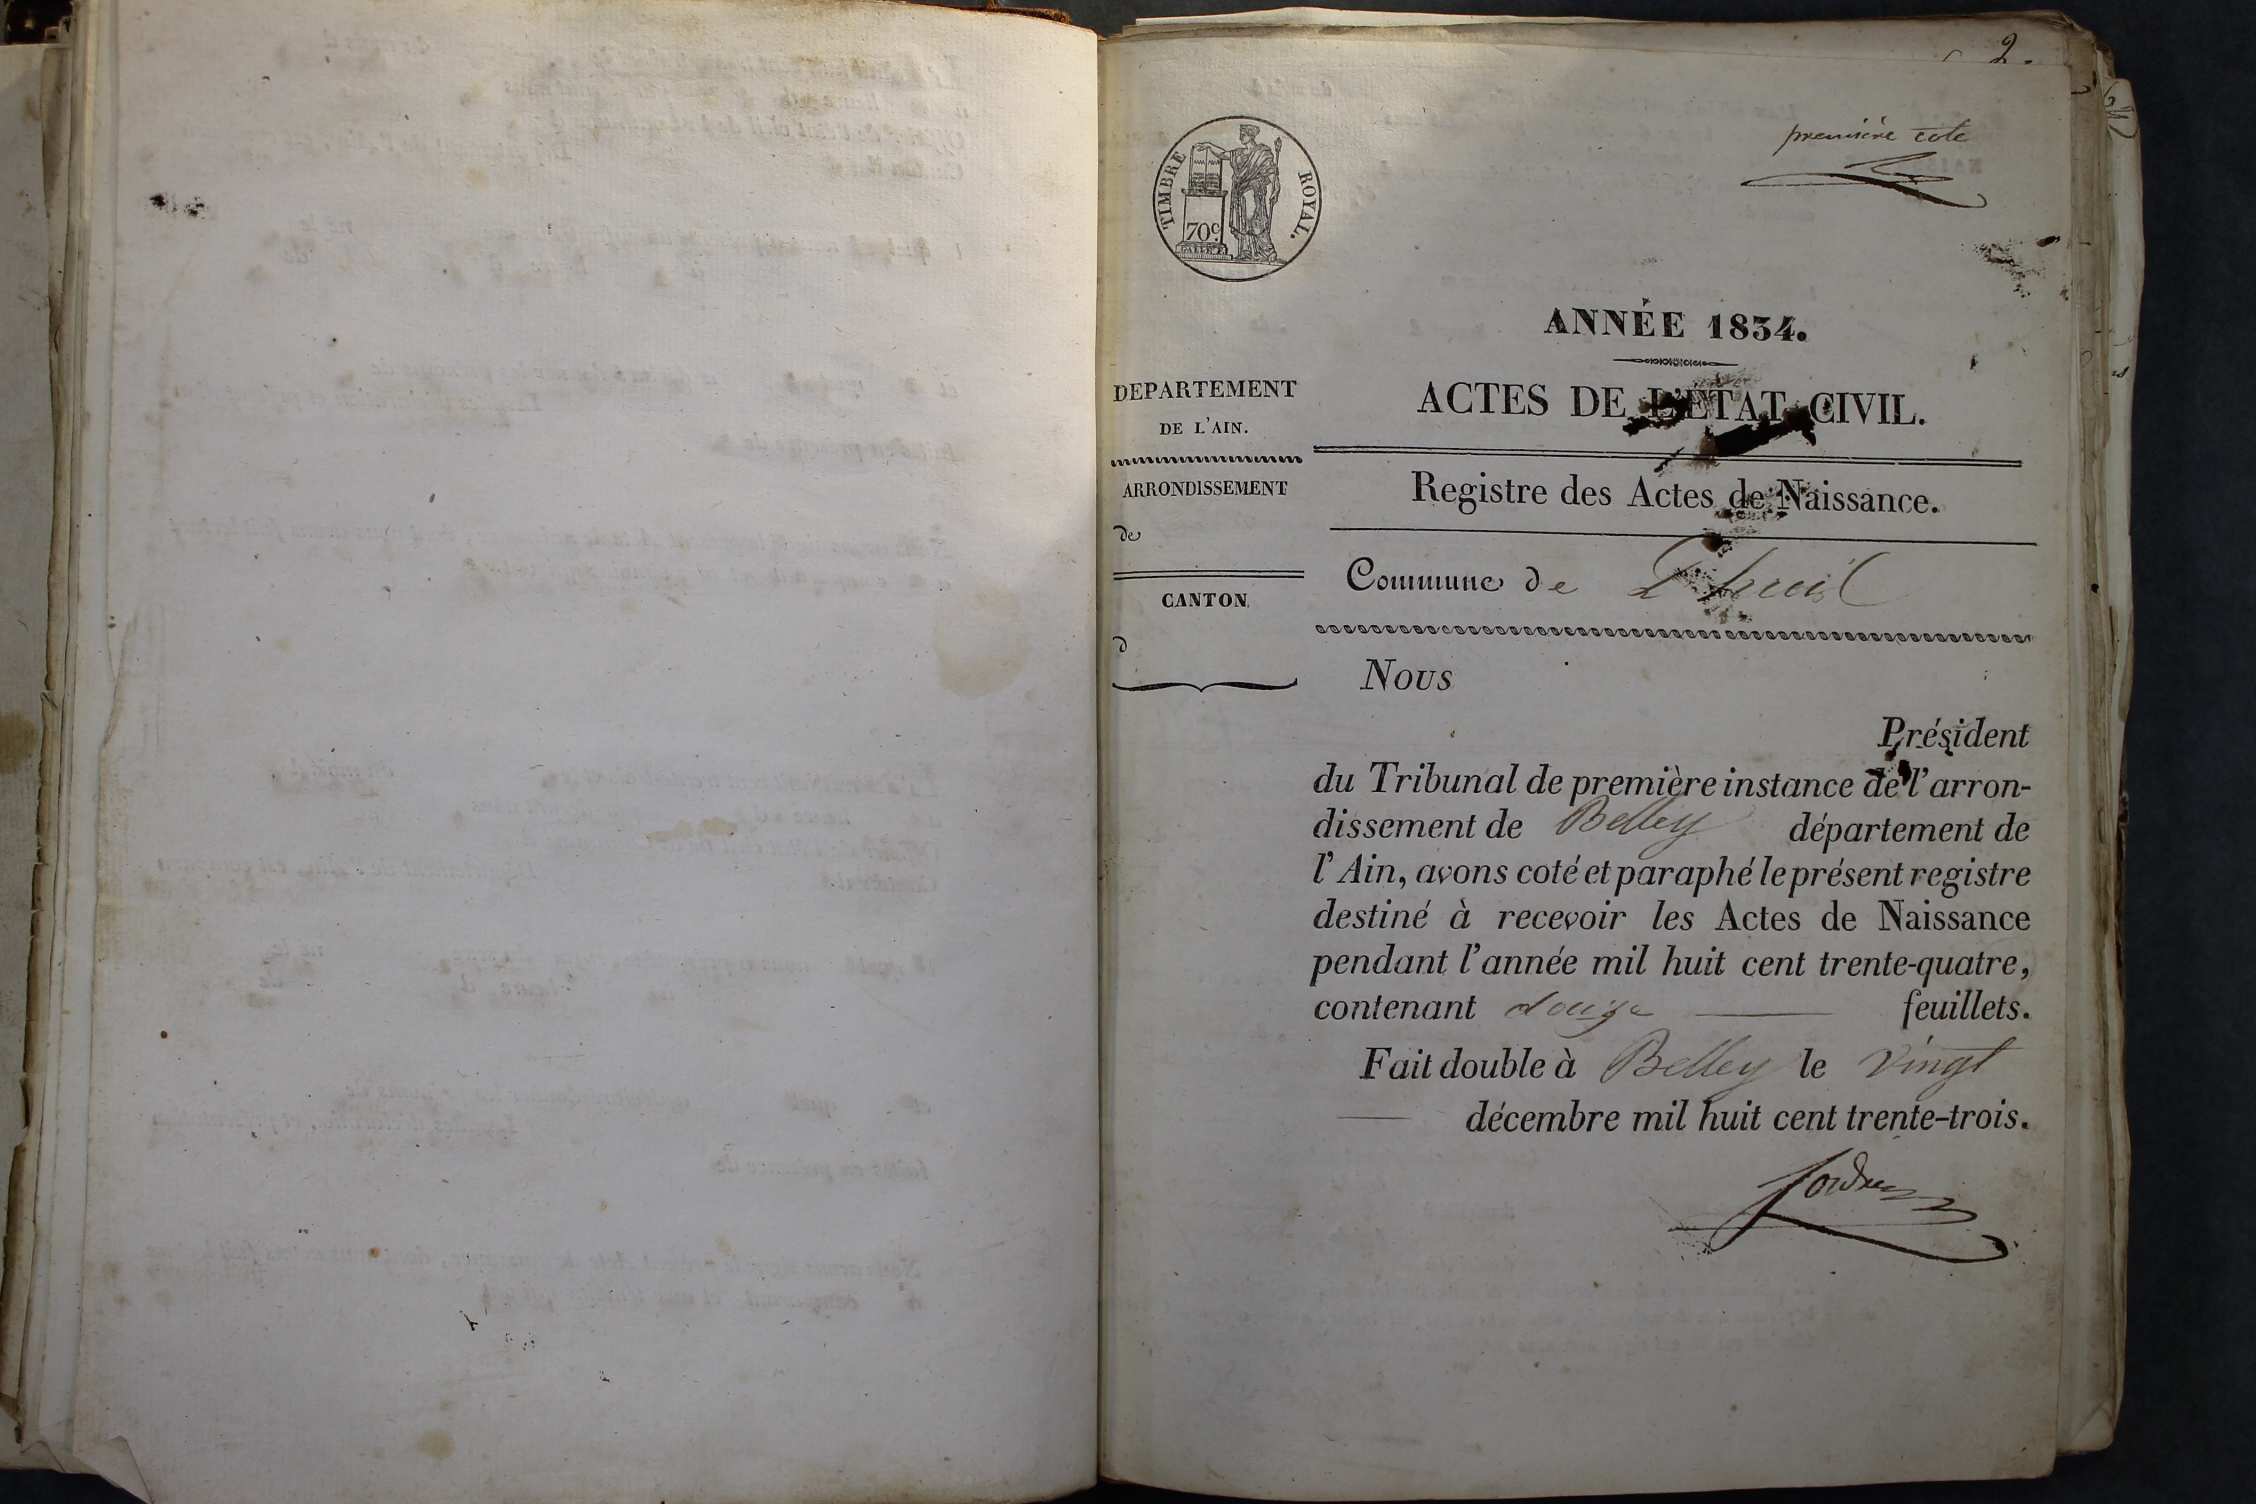 2.
première cote
TIMBRE ROYAL.
70c.
ANNÉE 1834.
DEPARTEMENT
DE L'AIN.
ACTES DE L'ÉTAT CIVIL.
ARRONDISSEMENT
de
Registre des Actes de Naissance.
CANTON
d
Commune de Lhuis
Nous
Président
du Tribunal de première instance de l'arron-
dissement de Belley département de
l'Ain, avons coté et paraphé le présent registre
destiné à recevoir les Actes de Naissance
pendant l'année mil huit cent trente-quatre,
contenant douze feuillets.
Fait double à Belley le vingt
décembre mil huit cent trente-trois.